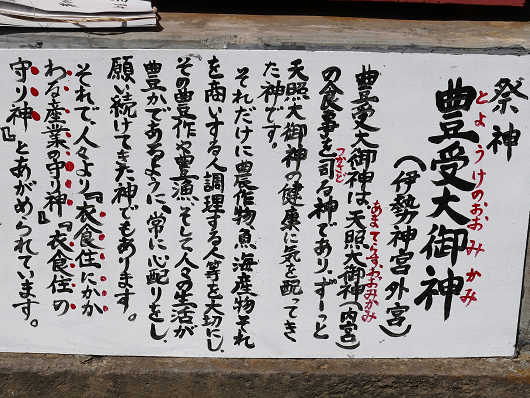 祭神
豊受大御神
とようけのおおみかみ
(伊勢神宮外宮)
豊受大御神は、天照大御神(内宮)
あまてらすおおみかみ
の食事を司る神であり、ずーっと
つかさど
天照大御神の健康に気を配ってき
た神です。
それだけに農作物、魚、海産物それ
を商いする人、調理する人等を大切にし、
その豊作や豊漁、そして人々の生活が
豊かであるように、常に心配りをし、
願い続けてきた神でもあります。
それで、人々より『衣食住にかか
わる産業の守り神』『衣食住の
守り神』とあがめられています。